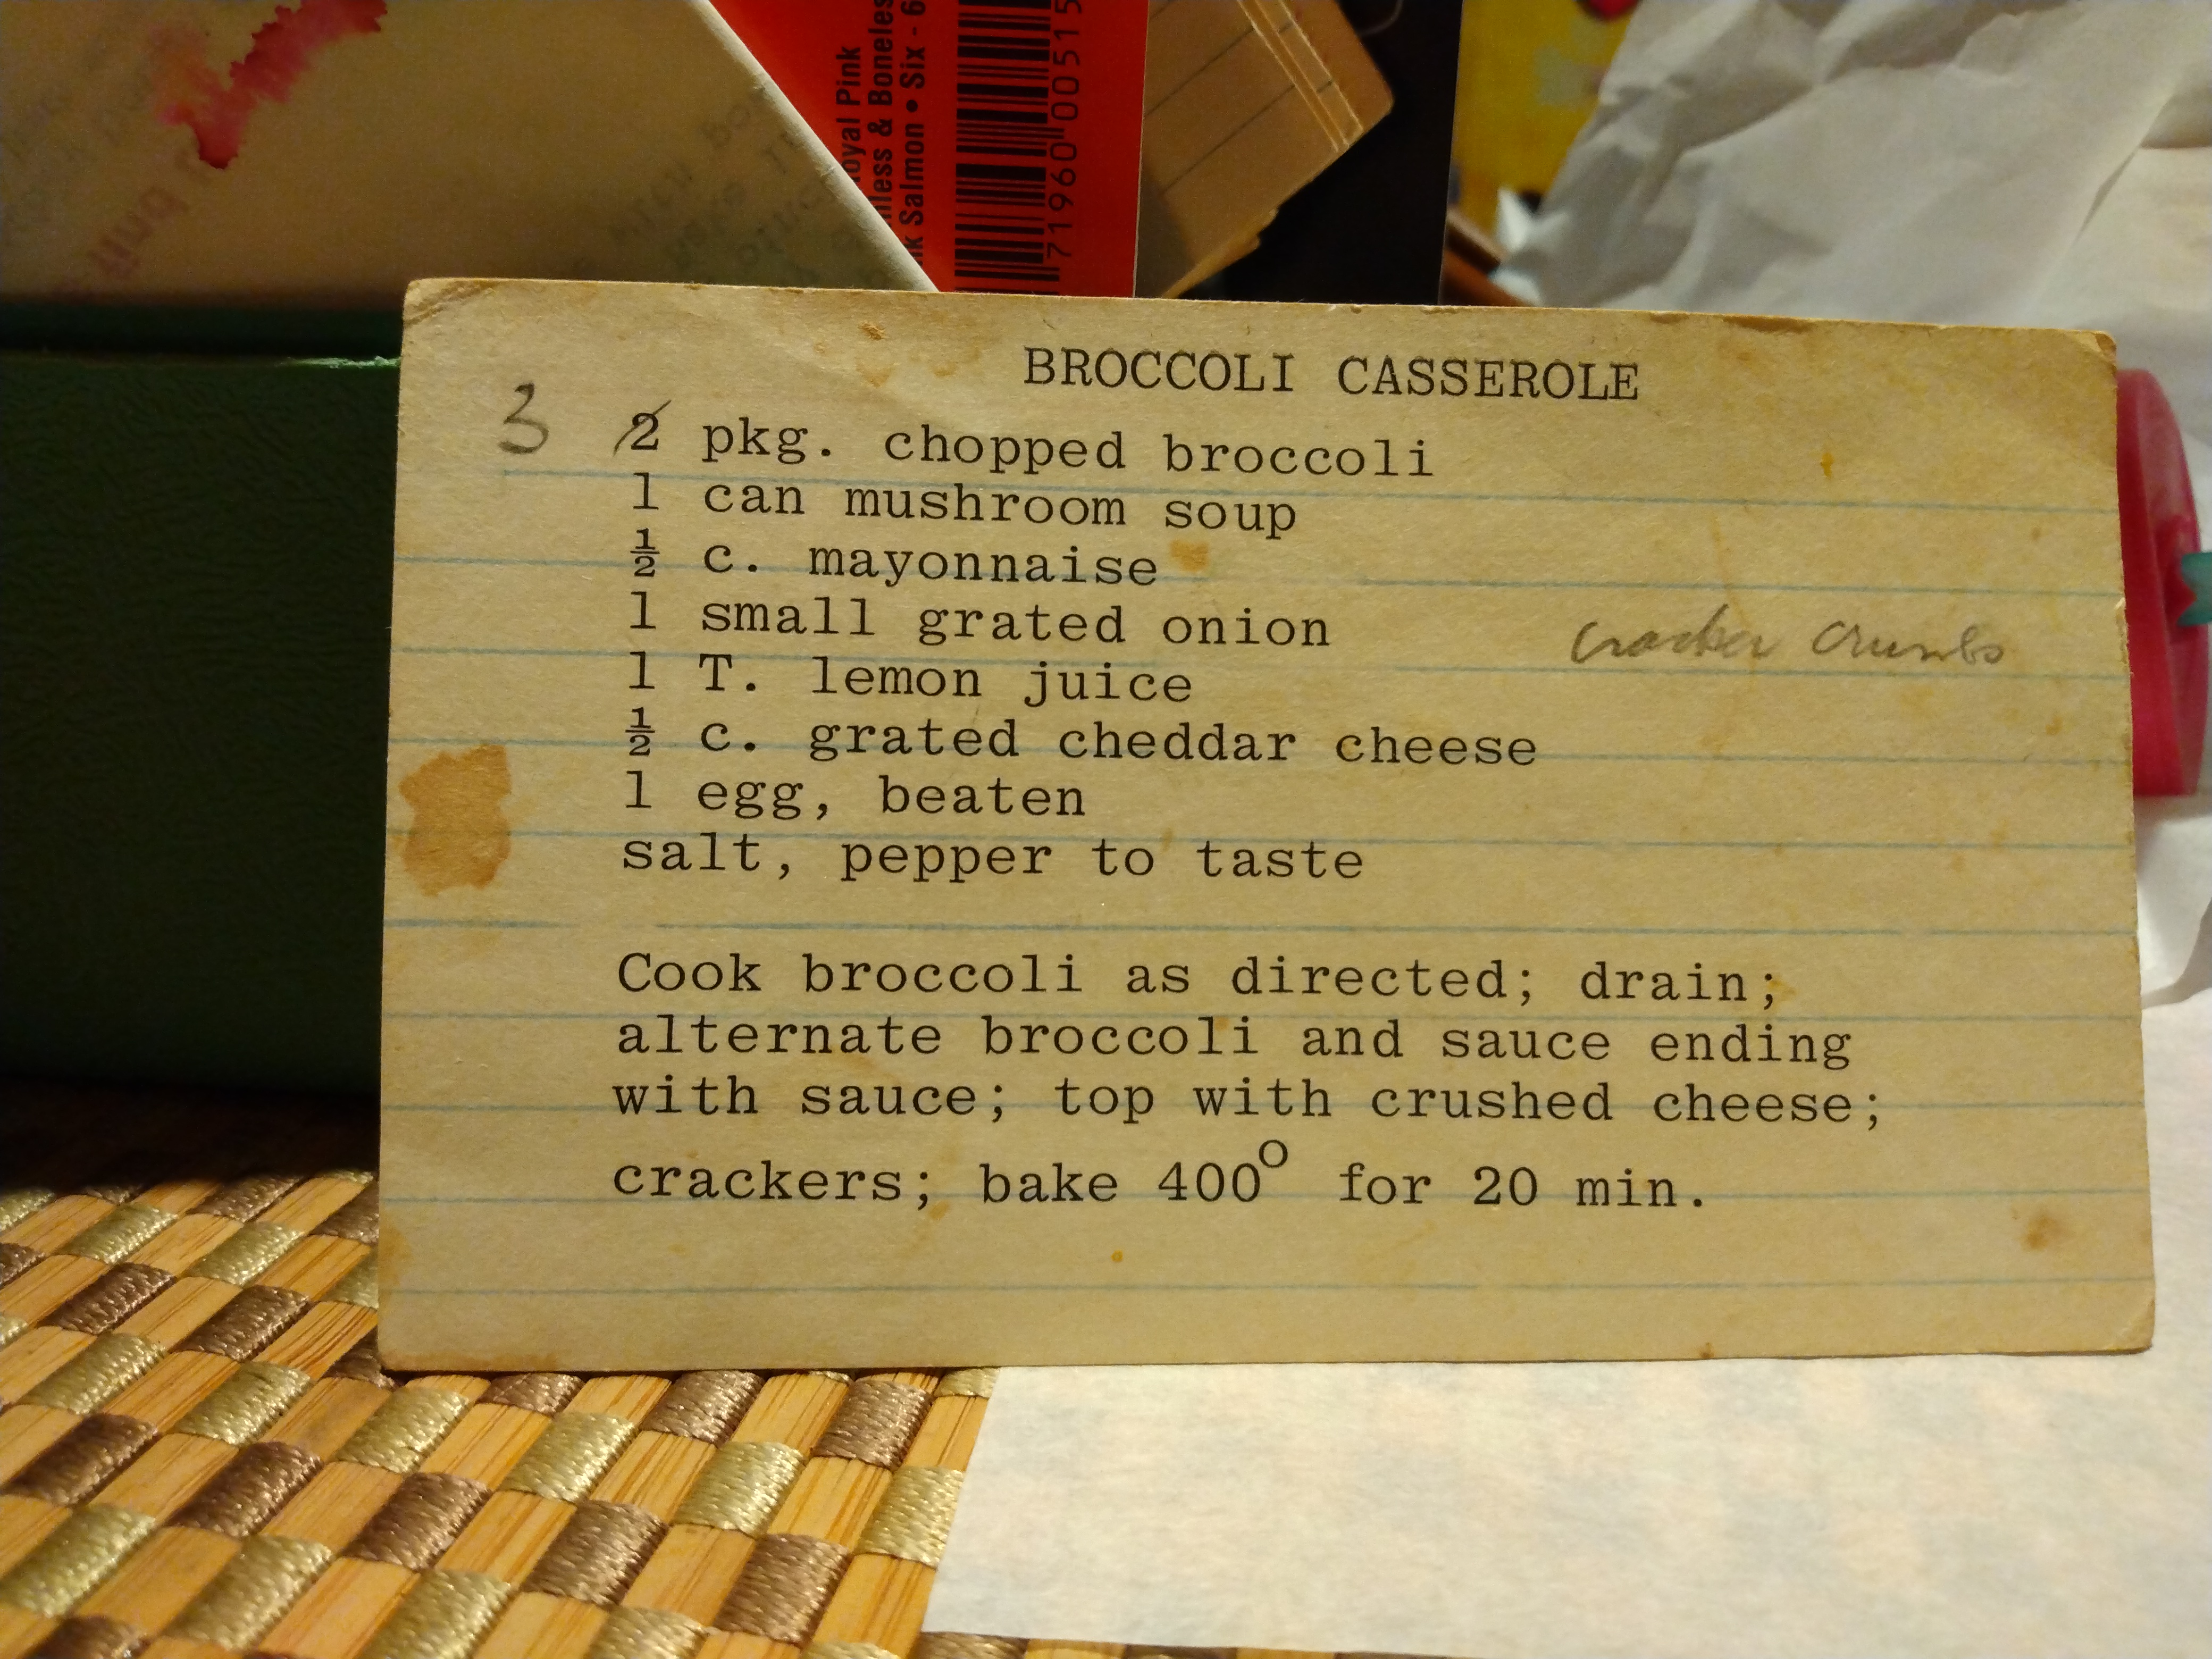 oyal Pink
nless & Boneles
nk Salmon • Six - 6
71960 00515
BROCCOLI CASSEROLE
3 2 pkg. chopped broccoli
1 can mushroom soup
½ c. mayonnaise
1 small grated onion
cracker crumbs
1 T. lemon juice
½ c. grated cheddar cheese
1 egg, beaten
salt, pepper to taste
Cook broccoli as directed; drain;
alternate broccoli and sauce ending
with sauce; top with crushed cheese;
crackers; bake 400° for 20 min.